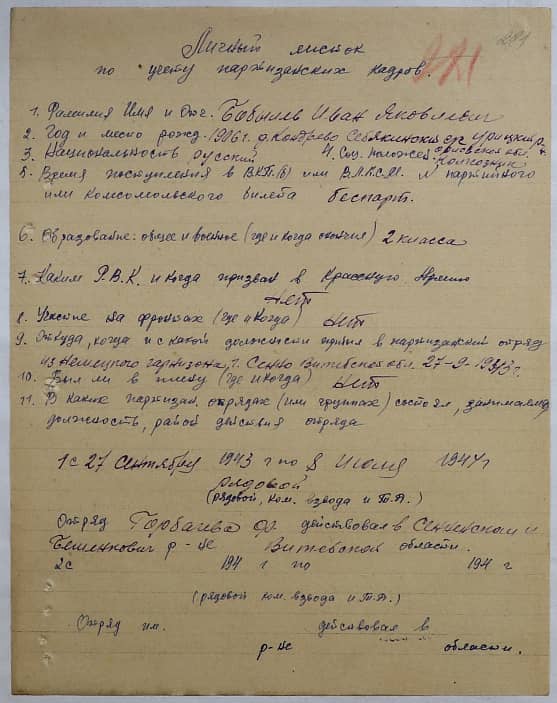 Личный листок
по учету партизанских кадров.
1. Фамилия Имя и Отч. Бабыль Иван Яковлевич
2. Год и место рожд. 1906 г. Урицкий р.
3. Национальность русский 4. Соц. положен. колхозник
5. Время поступления в ВКП(б) или ВЛКСМ. N партийного
или комсомольского билета беспарт.
6. Образование: общее и военное (где и когда окончил) 2 класса
7. Каким Р.В.К. и когда призван в Красную Армию
нет
8. Участие на фронтах (где и когда) нет
9. Откуда, когда и с какой должности пришел в партизанский отряд
из Немецкого гарнизона, г. Сенно Витебской обл. 27-9-1943 г.
10. Был ли в плену (где и когда) нет
11. В каких партизан. отрядах (или группах) состоял, занимаемая
должность, район действия отряда
1 с 27 сентября 1943 г по 8 июля 1944 г
рядовой
(рядовой, ком. взвода и т.д.)
Отряд Горбачева действовал в Сенненском и
Бешенкович р-не Витебской области.
2 с 194 г по 194 г
(рядовой ком. взвода и т.д.)
Отряд им. действовал в
р-не области.